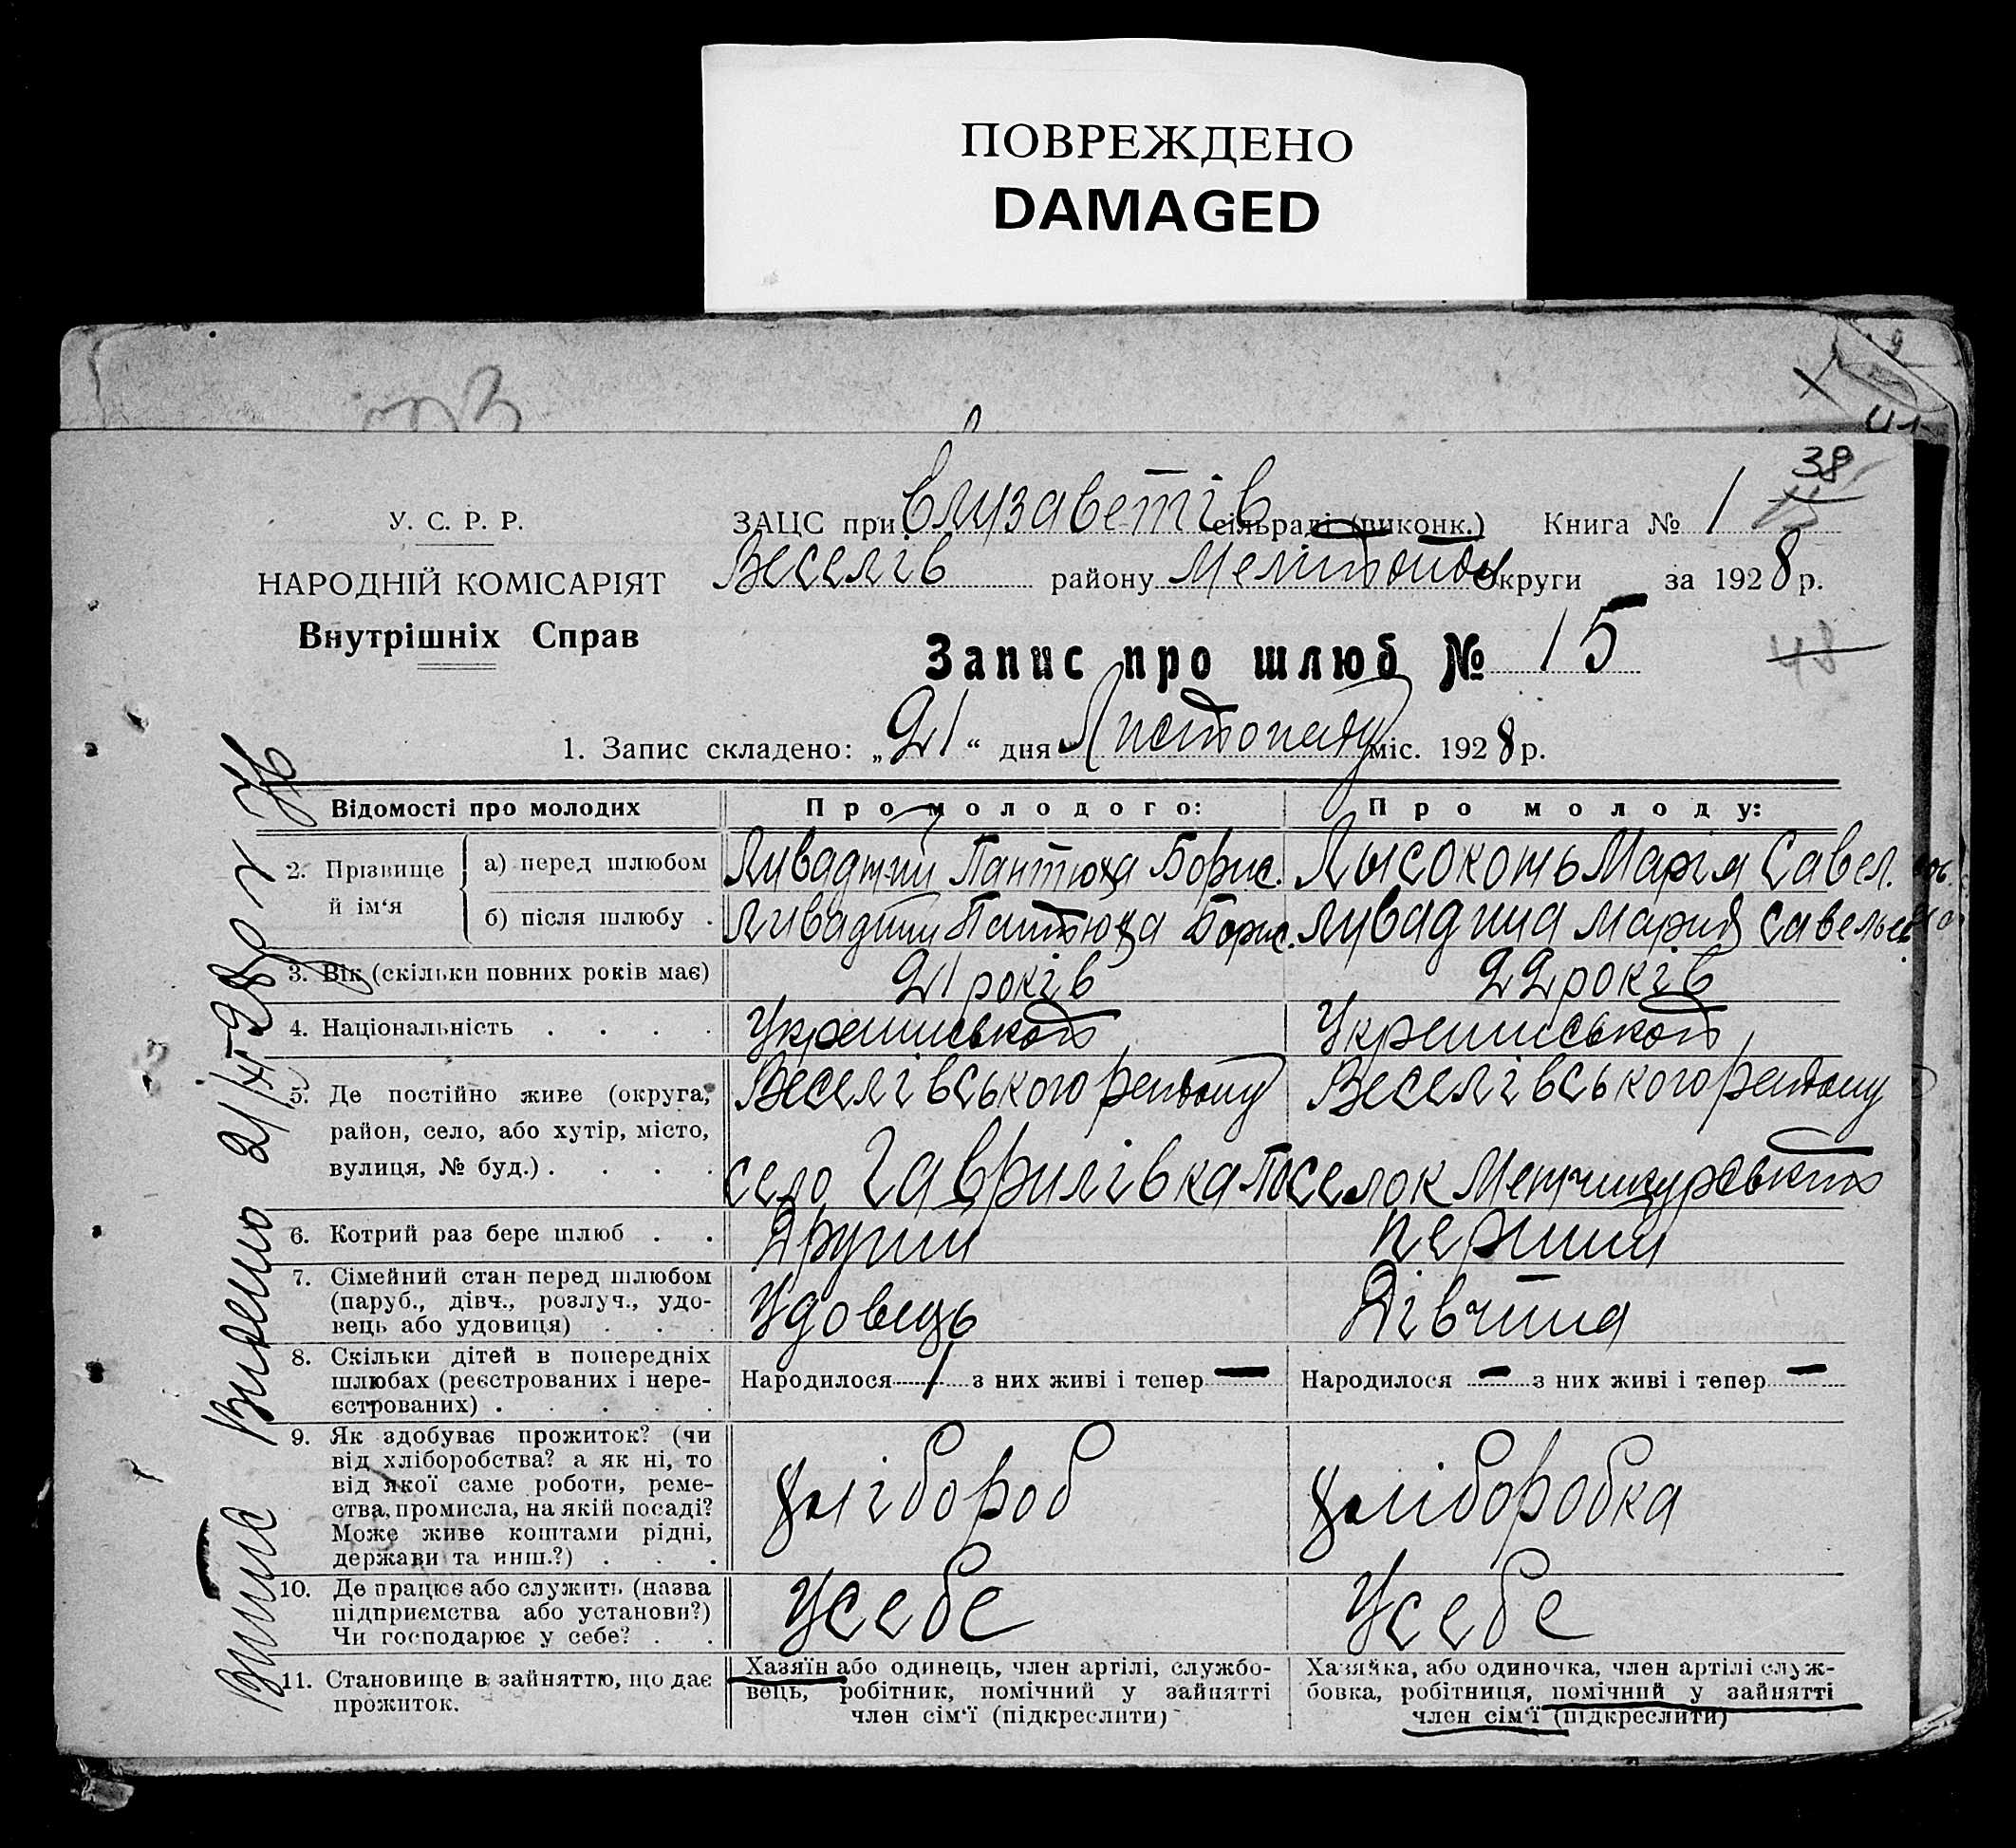 ПОВРЕЖДЕНО
DAMAGED
38
У. С. Р. Р.
НАРОДНІЙ КОМІСАРІЯТ
Внутрішніх Справ
ЗАЦС при Єлизаветів сільраді (виконк.) Книга № 1
Веселів району Мелітопол округи за 1928 р.
Запис про шлюб № 15
48
1. Запис складено: „21“ дня Листопаду міс. 1928 р.
Відомості про молодих Про молодого: Про молоду:
2. Прізвище й ім‘я
а) перед шлюбом Ливадний Пантюха Борис. Лысоконь Марія Савел.
б) після шлюбу . Ливадний Пантюха Борис. Ливадина Мария Савельев
3. Вік (скільки повних років має) 21 років 22 років
4. Національність . . . . Украинської Украинської
5. Де постійно живе (округа, район, село, або хутір, місто, вулиця, № буд.) . . . .
Веселівського району Веселівського району
село Гаврилівка Поселок
6. Котрий раз бере шлюб . . Другий перший
7. Сімейний стан перед шлюбом
(паруб., дівч., розлуч., удо-
вець або удовиця) . . . Удовець Дівчина
8. Скільки дітей в попередніх
шлюбах (реєстрованих і нере-
єстрованих) . . . . .
Народилося 1 з них живі і тепер — Народилося — з них живі і тепер —
9. Як здобуває прожиток? (чи
від хліборобства? а як ні, то
від якої саме роботи, реме-
ства, промисла, на якій посаді?
Може живе коштами рідні,
держави та инш.?) . . .
Хлібороб Хліборобка
10. Де працює або служить (назва
підприємства або установи?)
Чи господарює у себе? . .
У себе У себе
11. Становище в зайняттю, що дає
прожиток.
Хазяїн або одинець, член артілі, службо-
вець, робітник, помічний у зайнятті
член сім‘ї (підкреслити)
Хазяйка, або одиночка, член артілі служ-
бовка, робітниця, помічний у зайнятті
член сім‘ї (підкреслити)